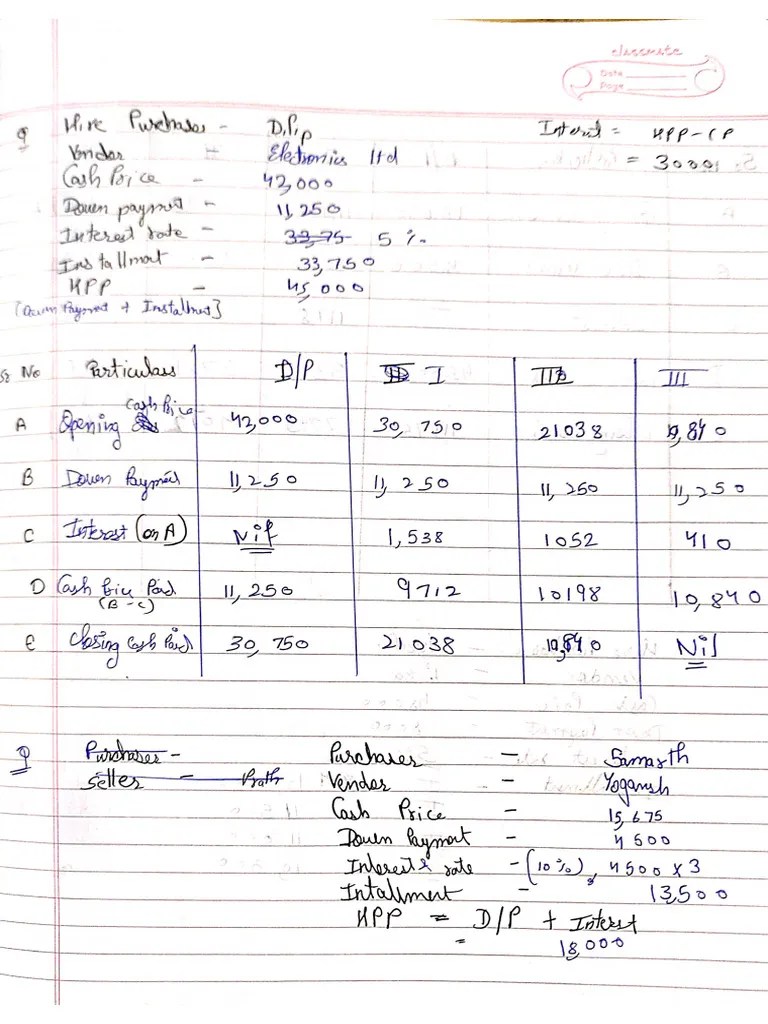 classmate
Date
Page
Q Hire Purchaser - D.P.p Interest = HPP - CP
Vendor Electronics ltd = 3000
Cash Price - 42,000
Down payment - 11,250
Interest rate - 33,75 5%
Installment - 33,750
HPP - 45,000
[Down Payment + Installment]
Sr No Particulars D/P I II III
Cash Price
A Opening 42,000 30,750 21038 10,840
B Down Payment 11,250 11,250 11,250 11,250
C Interest (on A) Nil 1,538 1052 410
D Cash Price Paid 11,250 9712 10198 10,840
(B-C)
E Closing Cash Paid 30,750 21038 10,840 Nil
Q Purchaser - Purchaser - Samarth
Seller - Prath Vendor - Yogansh
Cash Price - 15,675
Down Payment - 4500
Interest rate - (10%), 4500 x 3
Intallment - 13,500
HPP = D/P + Interst
= 18,000